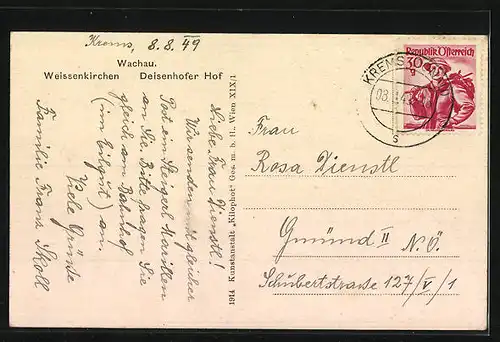 Krems, 8.8.49
Wachau.
Weissenkirchen Deisenhofer Hof
Liebe Frau Dienstl!
Wir senden mit gleicher
Post ein Steigerl Marillen
an Sie. Bitte fragen Sie
gleich am Bahnhof
(im Eilgut) an.
Viele Grüße
Familie Franz Skoll
1914 Kunstanstalt „Kilophot“ Ges. m. b. H., Wien XIX/1
KREMS
08.
S
Republik Österreich
30
g
Frau
Rosa Dienstl
Gmünd II N.Ö.
Schubertstrasse 127/V/1